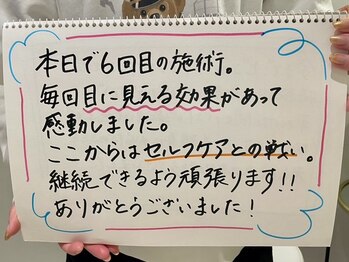 本日で6回目の施術。
毎回目に見える効果があって
感動しました。
ここからはセルフケアとの戦い。
継続できるよう頑張ります!!
ありがとうございました!